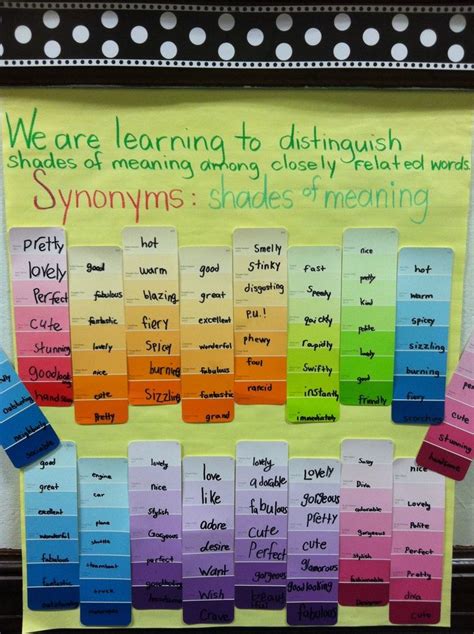 We are learning to distinguish
shades of meaning among closely related words.
Synonyms: shades of meaning
pretty
lovely
perfect
cute
stunning
goodlooking
handsome
good
fabulous
fantastic
lovely
cute
pretty
hot
warm
blazing
fiery
spicy
burning
sizzling
good
great
excellent
wonderful
fabulous
fantastic
grand
smelly
stinky
disgusting
p.u.!
phewy
foul
rancid
fast
speedy
quickly
rapidly
swiftly
instantly
immediately
nice
pretty
kind
polite
lovely
good
friendly
hot
warm
spicy
sizzling
burning
fiery
scorching
neighborly
sociable
nice
cute
pretty
stunning
handsome
good
great
excellent
wonderful
fabulous
fantastic
engine
car
plane
shuttle
steamboat
truck
lovely
nice
stylish
Gorgeous
perfect
love
like
adore
desire
want
wish
crave
lovely
adorable
fabulous
cute
Perfect
gorgeous
Lovely
gorgeous
Pretty
cute
glamorous
goodlooking
fabulous
Sassy
Diva
adorable
gorgeous
stylish
fashionable
nice
Lovely
Polite
Perfect
Pretty
diva
cute